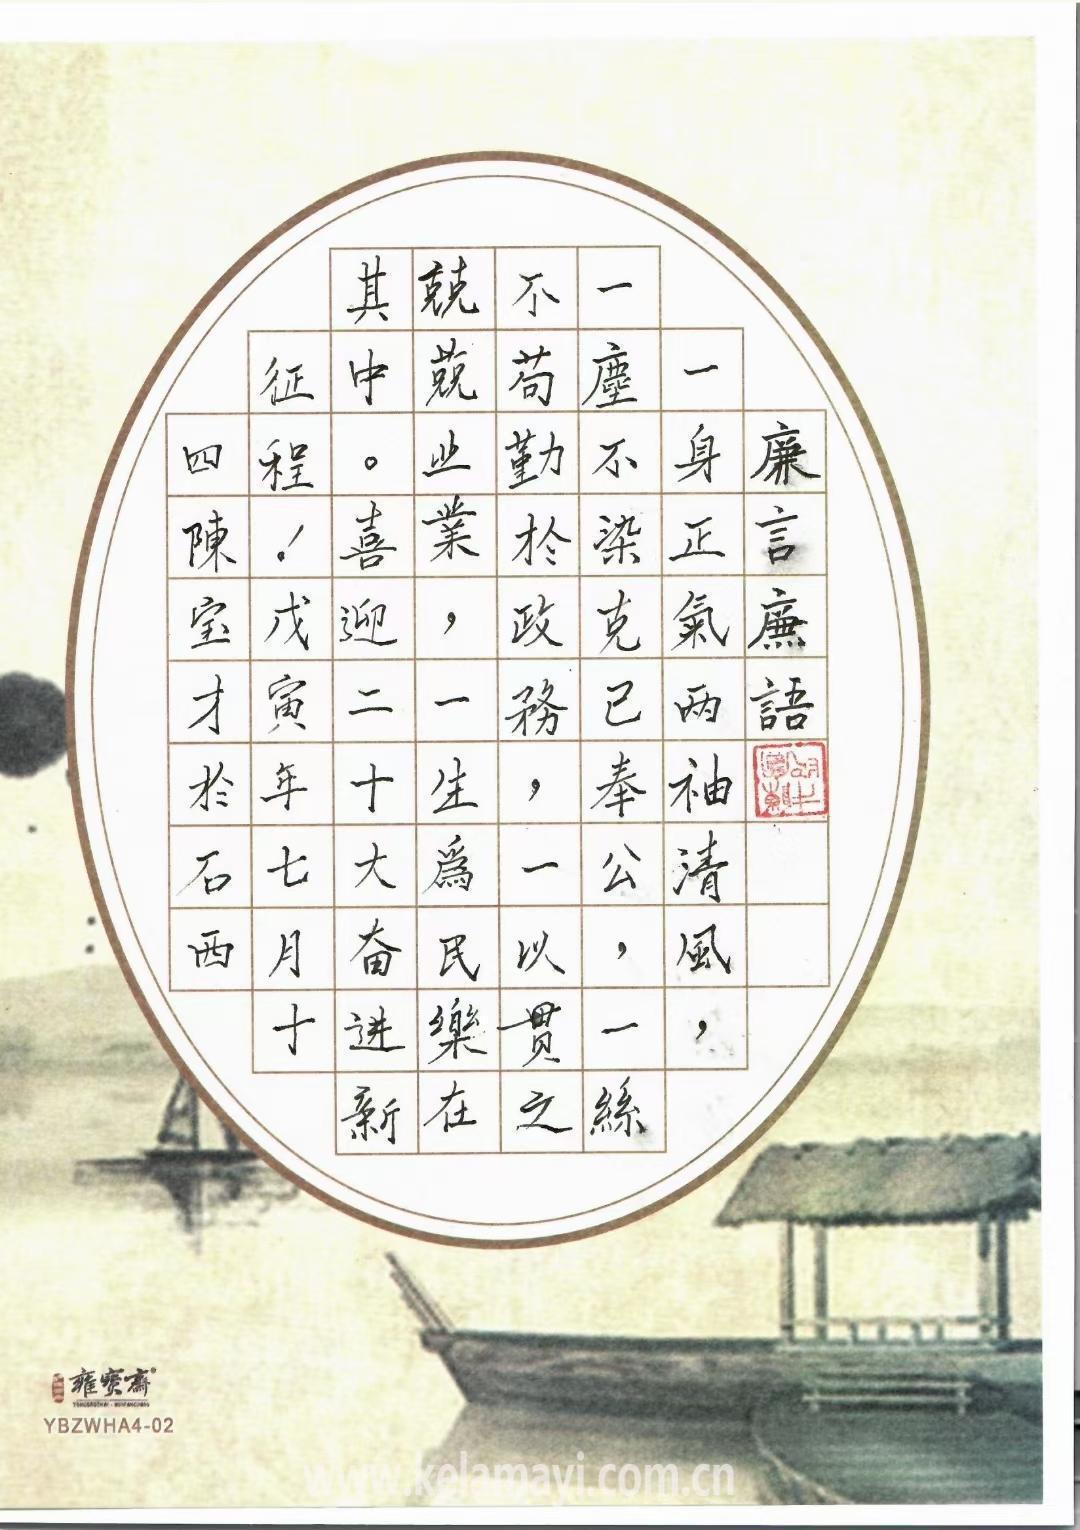 廉言廉語
一身正氣两袖清風，
一塵不染克己奉公，一絲
不苟勤於政務，一以貫之
兢兢业業，一生爲民樂在
其中。喜迎二十大奋進新
征程！戊寅年七月十
四陳宝才於石西
雍寶齋
YBZWHA4-02
www.kelamayi.com.cn